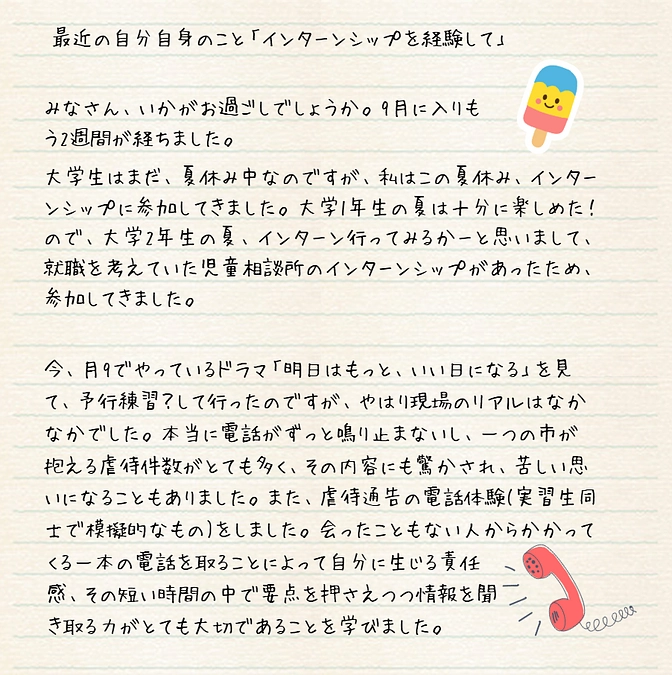 最近の自分自身のこと「インターンシップを経験して」
みなさん、いかがお過ごしでしょうか。9月に入りも
う2週間が経ちました。
大学生はまだ、夏休み中なのですが、私はこの夏休み、インター
ンシップに参加してきました。大学1年生の夏は十分に楽しめた!
ので、大学2年生の夏、インターン行ってみるかーと思いまして、
就職を考えていた児童相談所のインターンシップがあったため、
参加してきました。
今、月9でやっているドラマ「明日はもっと、いい日になる」を見
て、予行練習?して行ったのですが、やはり現場のリアルはなか
なかでした。本当に電話がずっと鳴り止まないし、一つの市が
抱える虐待件数がとても多く、その内容にも驚かされ、苦しい思
いになることもありました。また、虐待通告の電話体験(実習生同
士で模擬的なもの)をしました。会ったこともない人からかかって
くる一本の電話を取ることによって自分に生じる責任
感、その短い時間の中で要点を押さえつつ情報を聞
き取る力がとても大切であることを学びました。